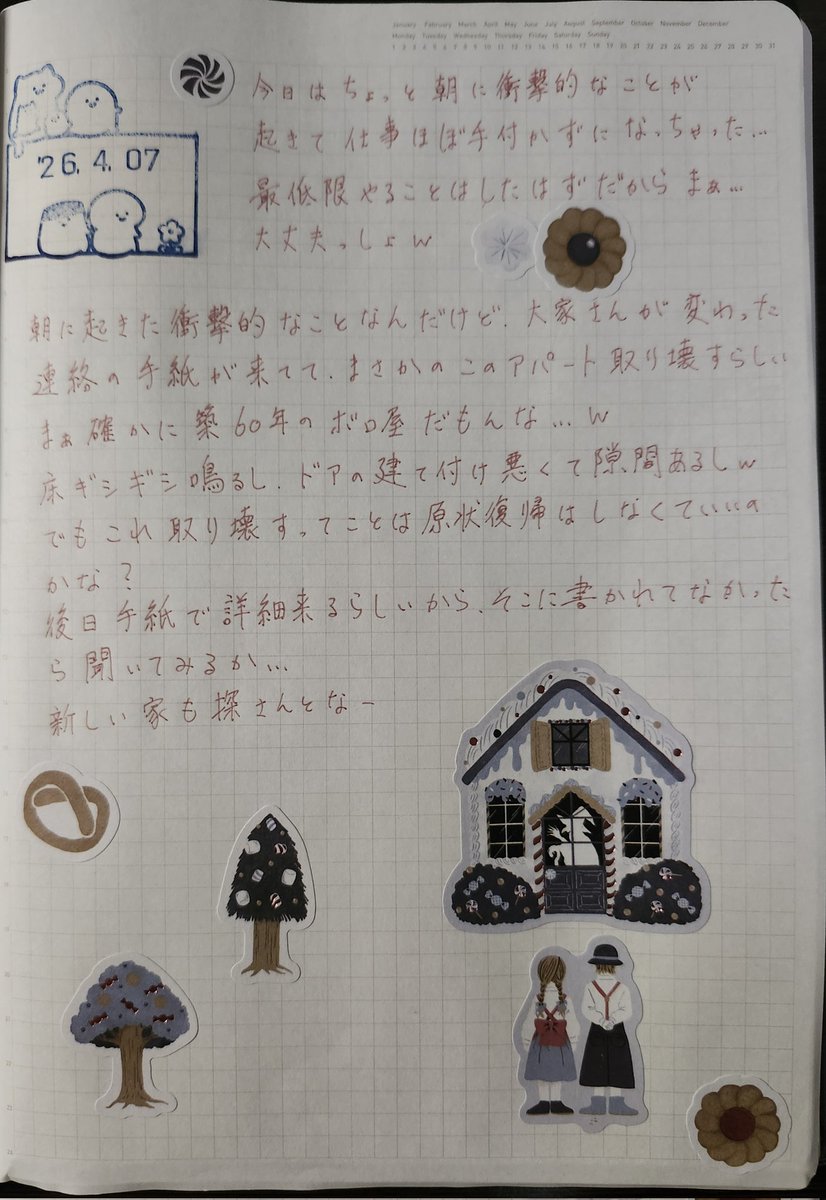 January February March April May June July August September October November December
Monday Tuesday Wednesday Thursday Friday Saturday Sunday
1 2 3 4 5 6 7 8 9 10 11 12 13 14 15 16 17 18 19 20 21 22 23 24 25 26 27 28 29 30 31
'26.4.07
今日はちょっと朝に衝撃的なことが
起きて仕事ほぼ手付かずになっちゃった…
最低限やることはしたはずだからまぁ…
大丈夫っしょw
朝に起きた衝撃的なことなんだけど、大家さんが変わった
連絡の手紙が来てて、まさかのこのアパート取り壊すらしい
まぁ確かに築60年のボロ屋だもんな…w
床ギシギシ鳴るし、ドアの建て付け悪くて隙間あるしw
でもこれ取り壊すってことは原状復帰はしなくていいの
かな?
後日手紙で詳細来るらしいから、そこに書かれてなかった
ら聞いてみるか…
新しい家も探さんとなー